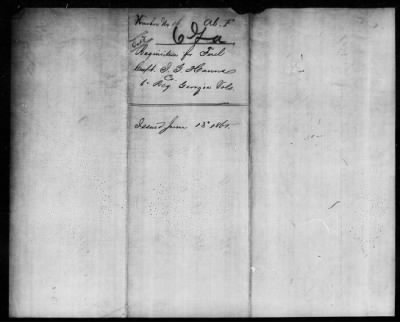 Voucher No 16 Ab. F
6 Ga
Requisition for Fuel
Capt. S. G. Hannes
Co
6 Reg Georgia Vols.
Issued June 15 1861.